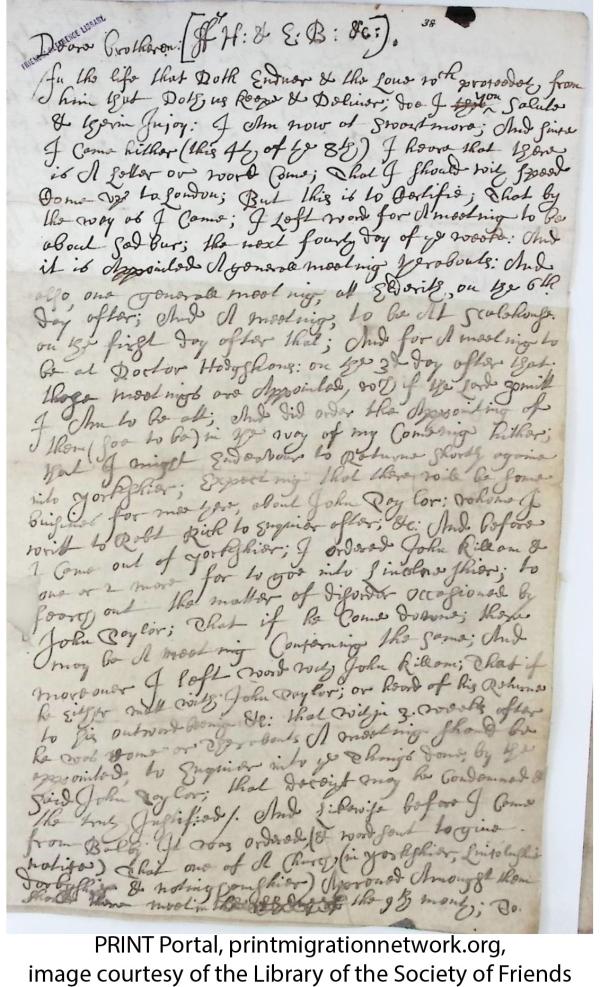 FRIENDS REFERENCE LIBRARY
38
Deare brotheren: [ff H: & E: B: &c:].
In the life that Doth Endure & the Love wch proceedeth from
him that Doth us keepe & Deliver; doe I you Salute
& therin Injoy: I Am now at Swartmore; And since
I Came hither (this 4th of ye 8th) I heare that there
is A Letter or word Come; That I should with speed
Come up to London; But this is to Certifie; That by
the way as I Came; I Left word for A meeting to be
about Sadbur; the next fourth day of ye weeke: And
it is Appointed A generall meeting therabouts: And
also, one generall meeting, att, on the 6th
day after; And A meeting, to be At Scalehouse
on the first day after that; And for A meeting to
be at Doctor Hodgshons: on ye 3d day after that:
those meetings are Appointed, wch if the Lord p[er]mitt
I Am to be att; And did order the Appointing of
them (soe to be) in ye way of my Comeing hither;
that I might Endeavour to Returne shortly againe
into Yorkshier; Expecting that there will be some
busines for mee there, about John Taylor; whome I
writt to Robt Rick to Enquier after; &c: And before
I Came out of Yorkshier; I ordered John Killam &
one or 2 more for to goe into Lincolneshier; to
search out the matter of disorder occasioned by
John Taylor; That if he Come downe; there
may be A meeting Conserning the same; And
moreover I left word with John Killam; That if
he Either mett with John Taylor; or heard of his Returne
to his outward beeing &c: that within 3: weeks after
he was Come or Therabouts A meeting should be
appointed to Enquier into ye Things done, by the
said John Taylor; that deceipt may be Condemned &
the truth Justified /. And Likewise before I Came
from Balby It was ordered (& word sent to give
notise) That one of A Church (in Yorkshier, Lincolnshier
Darbyshier & notinghamshier) Aproved Amongst them
should there meet in the 9th month; To.
PRINT Portal, printmigrationnetwork.org,
image courtesy of the Library of the Society of Friends